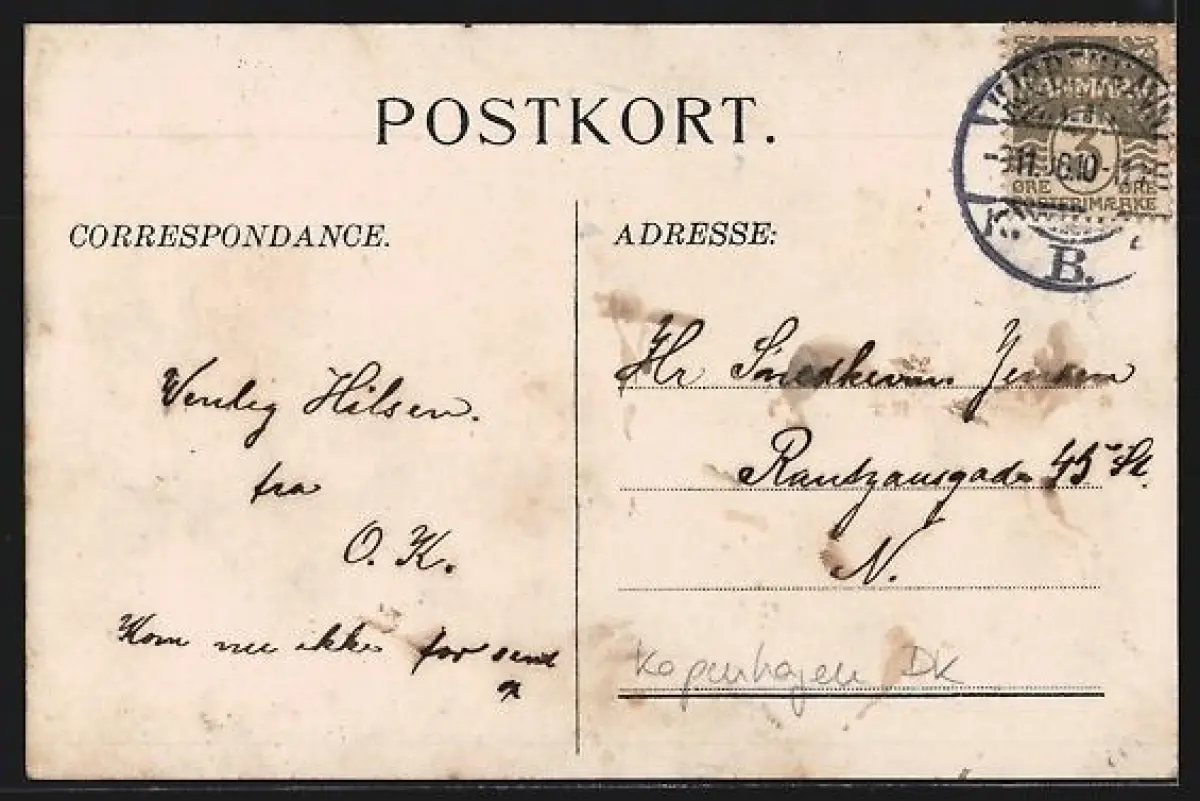 POSTKORT.
CORRESPONDANCE.
Venlig Hilsen.
fra
O. K.
Kom nu ikke for sent
ADRESSE:
Hr Snedkerm. Jensen
Rantzausgade 45 St.
N.
Kopenhagen DK
3
ØRE ØRE
POSTFRIMÆRKE
B.